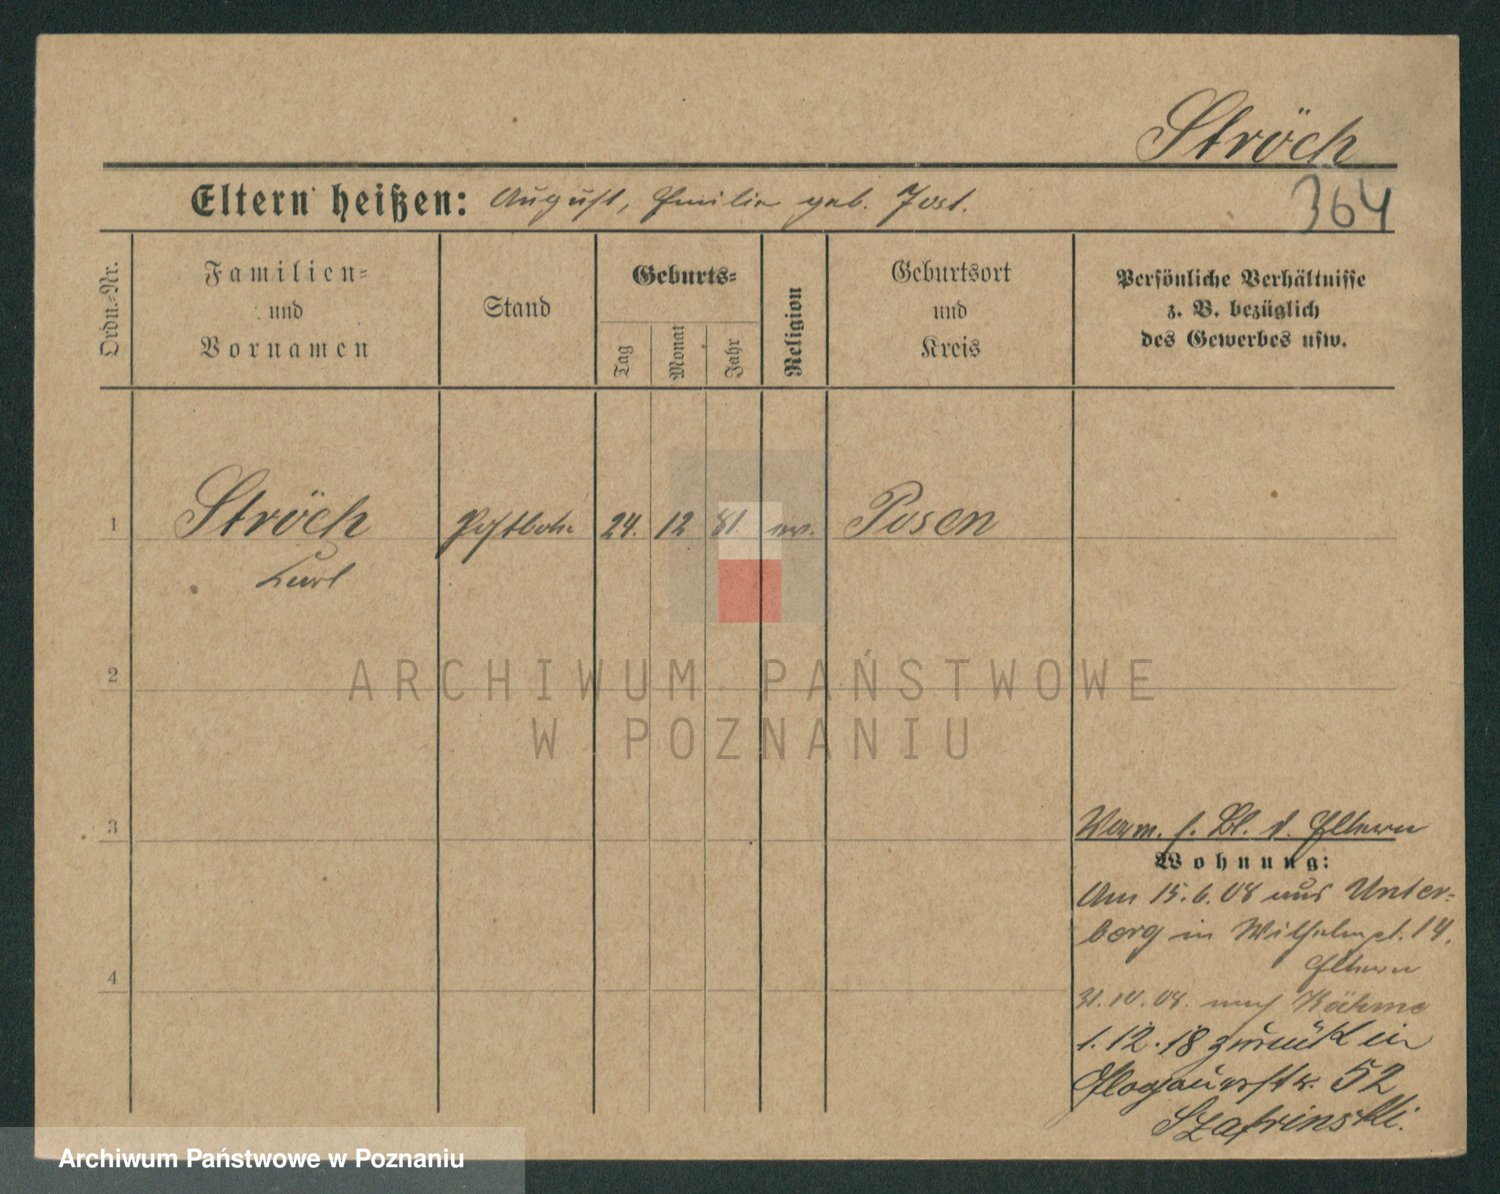 Ströch
364
Eltern heißen: August, Emilie geb. Jost.
Ordn.=Nr.
Familien=
und
Vornamen
Stand
Geburts=
Tag
Monat
Jahr
Religion
Geburtsort
und
Kreis
Persönliche Verhältnisse
z. B. bezüglich
des Gewerbes usw.
1 Ströch Postbote 24. 12 81 ev. Posen
Karl
2
ARCHIWUM PAŃSTWOWE
W POZNANIU
3
Verm. s. Bl. d. Eltern
Wohnung:
Am 15.6.08 aus Unter-
berg in Wilhelmpl. 14.
Eltern
4
31.10.08. nach
1.12.18 zurück in
Glogauerstr. 52
Szafrinski.
Archiwum Państwowe w Poznaniu